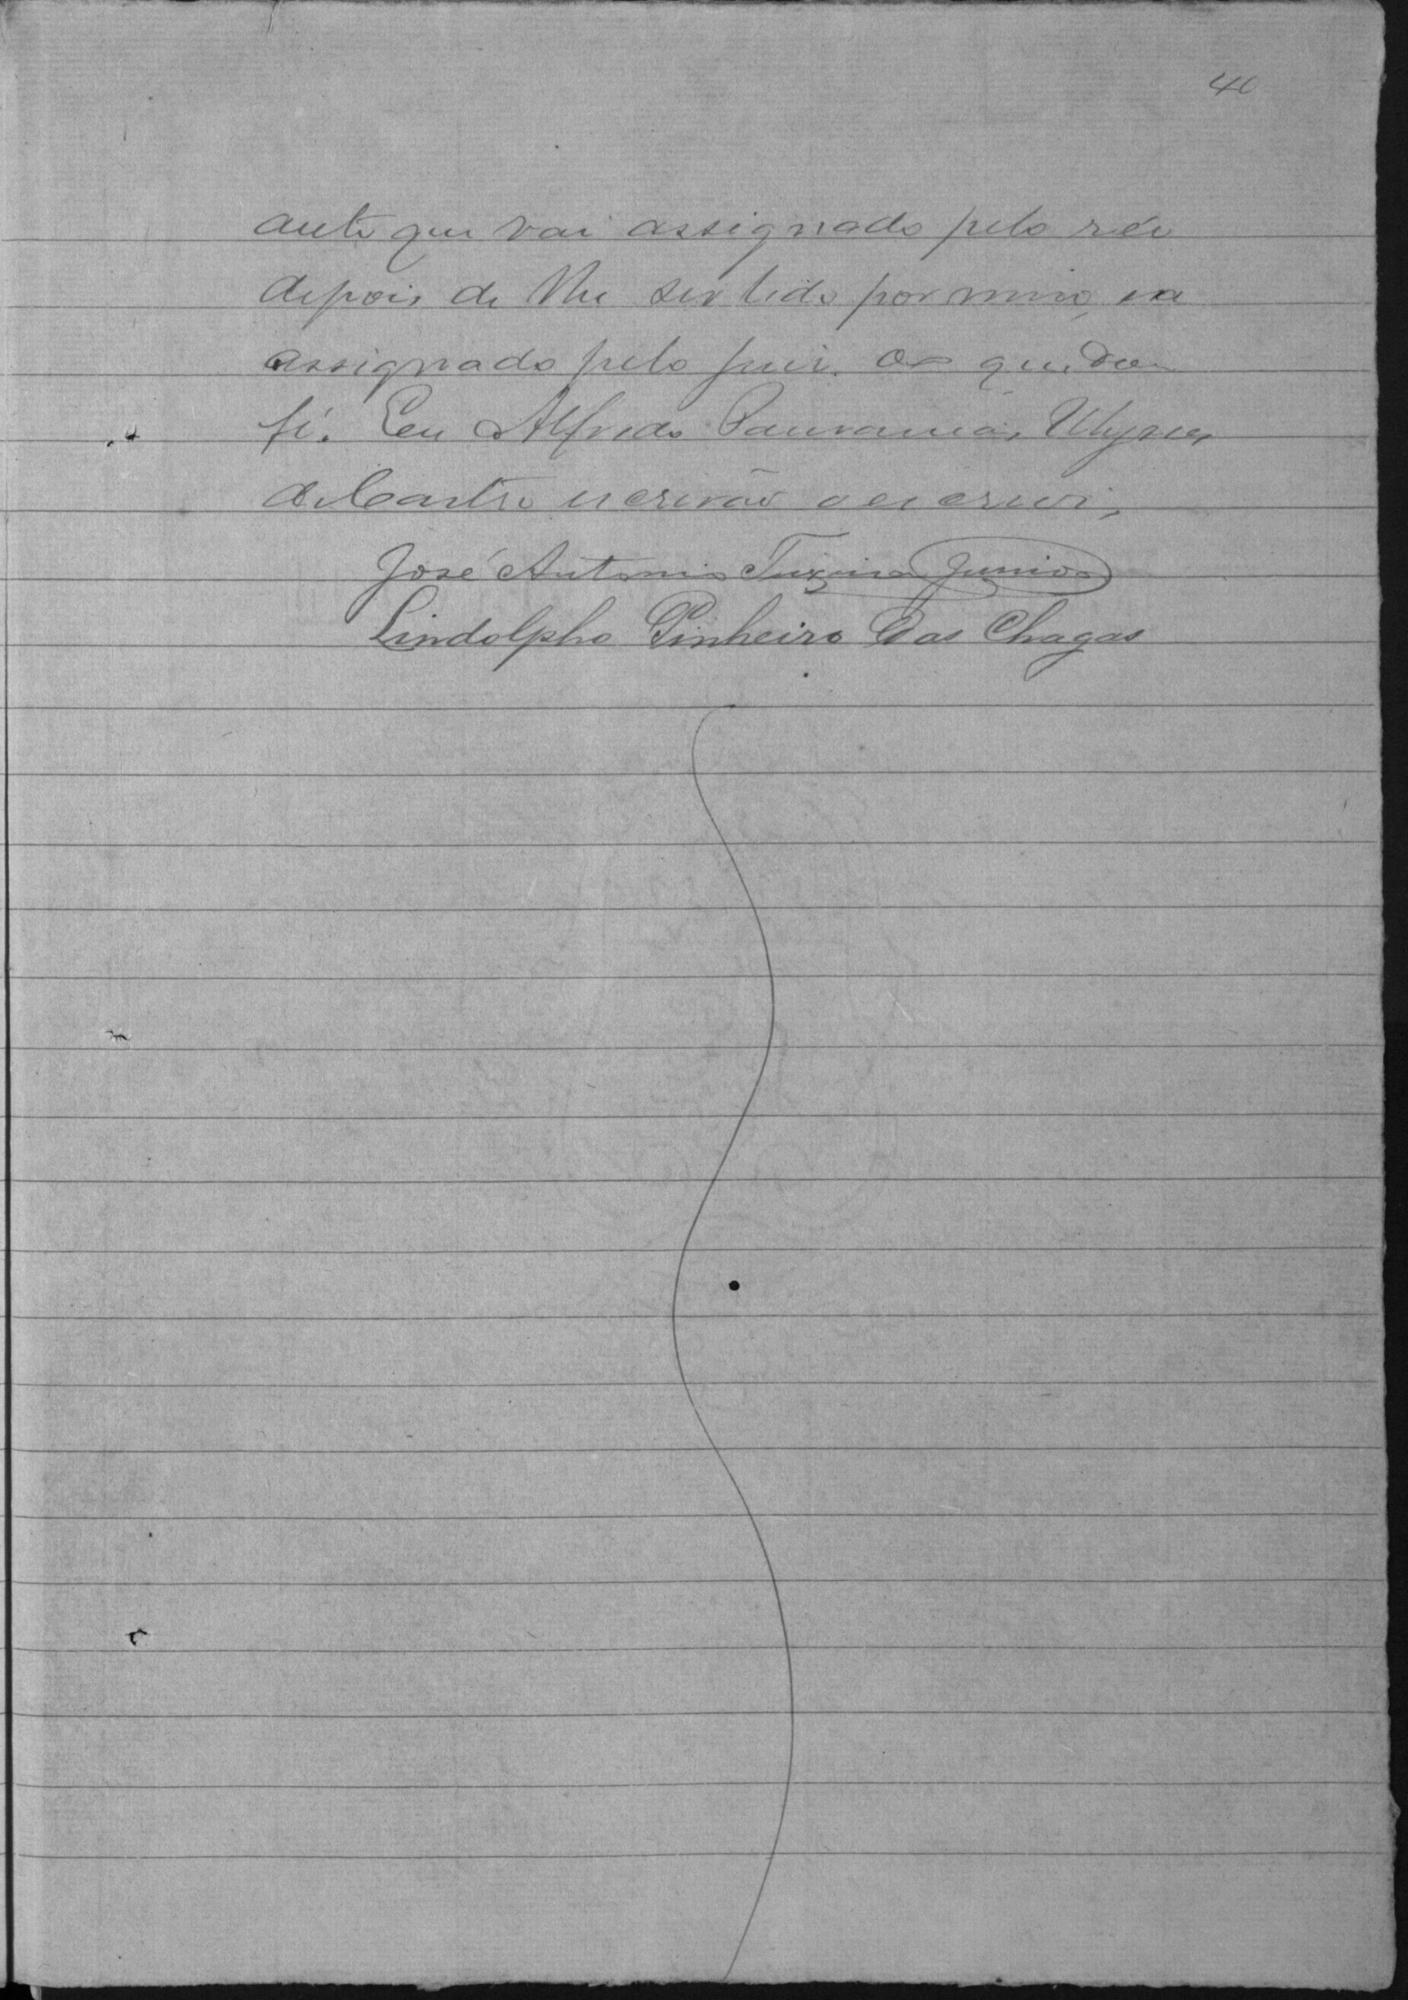 40
auto que vai assignado pelo réu
depois de lhe ser lido por mim, e
assignado pelo juiz. que dou
fé. Eu Alfredo Pausanias Ulysses
de Castro escrivão o escrevi,
José Antonio Teixeira Junior
Lindolpho Pinheiro Das Chagas